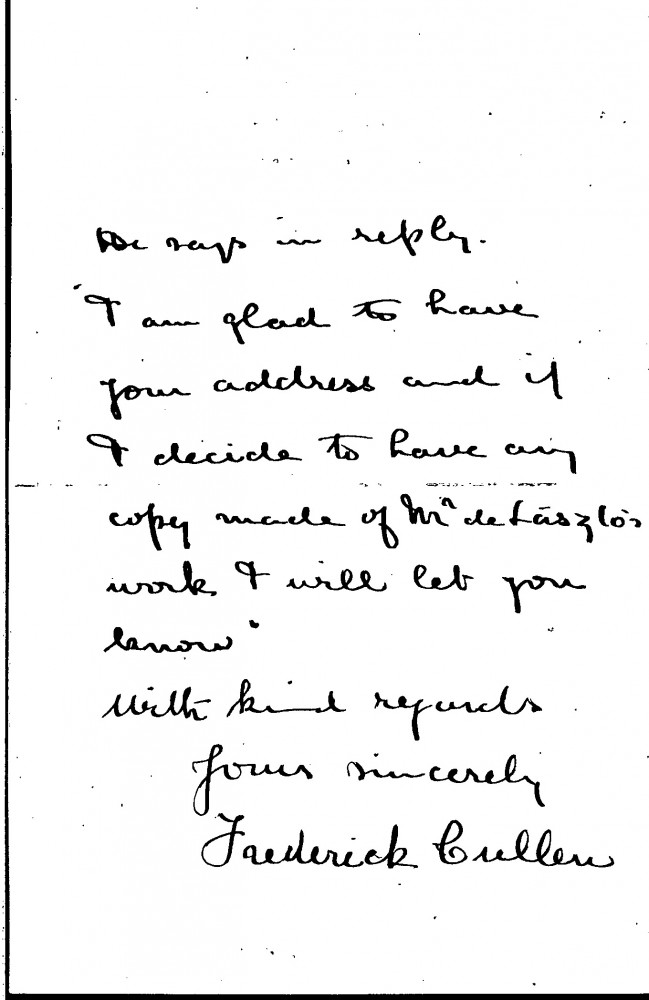 He says in reply.
"I am glad to have
your address and if
I decide to have any
copy made of Mr de László's
work I will let you
know"
With kind regards
Yours sincerely
Frederick Cullen